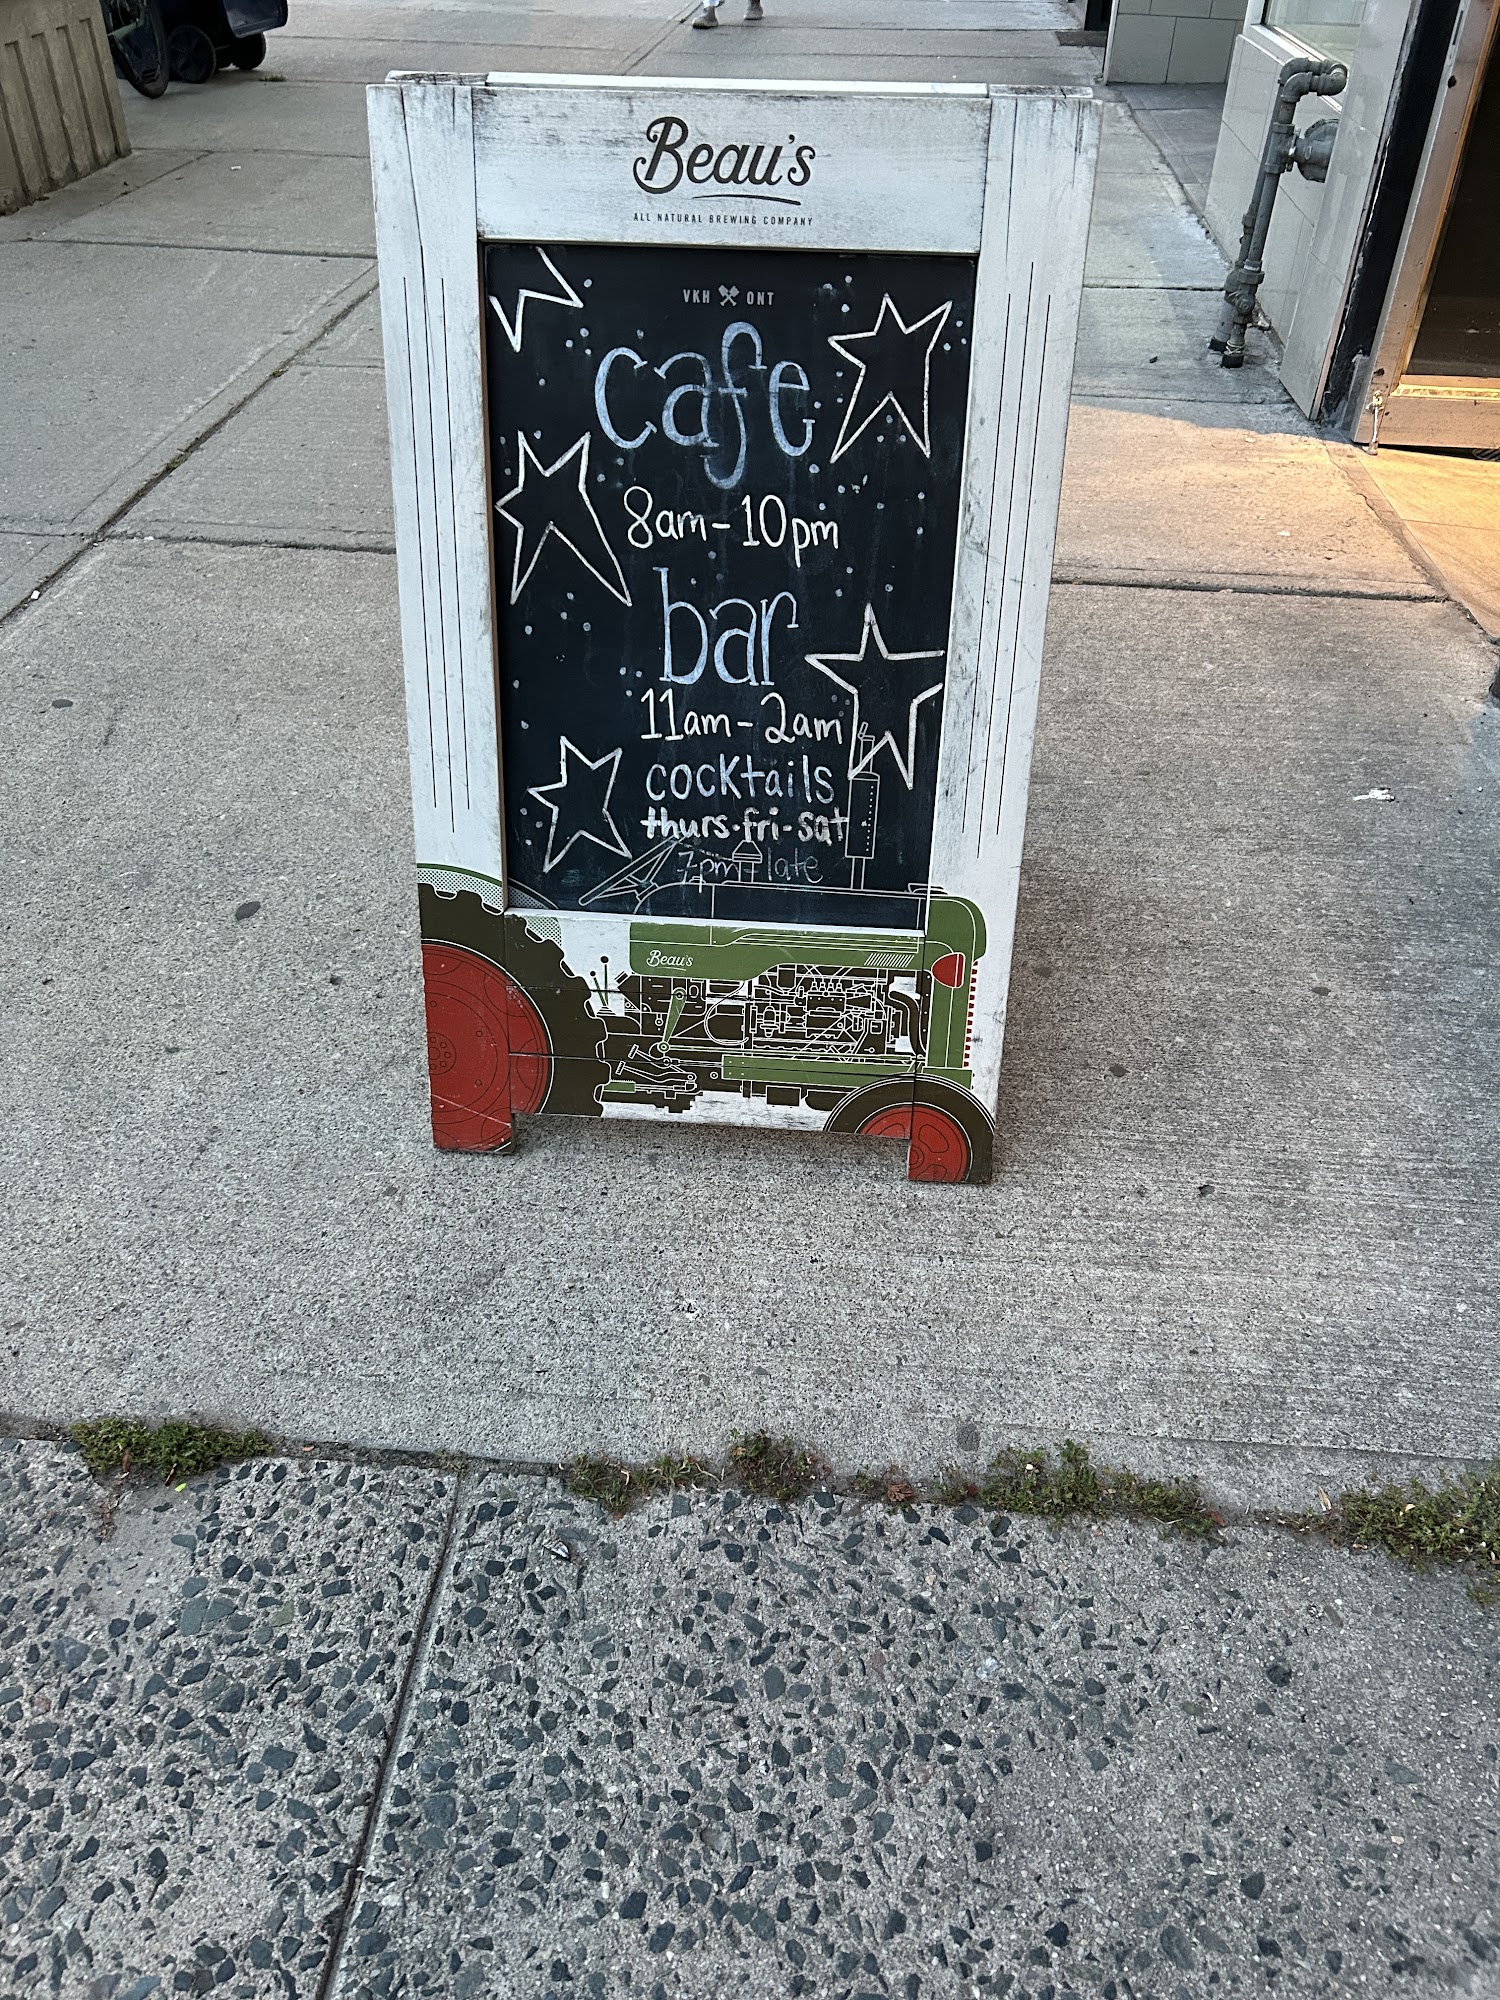 Beau's
ALL NATURAL BREWING COMPANY
VKH ONT
cafe
8am-10pm
bar
11am-2am
cocktails
thurs·fri-sat
7pm-late
Beau's